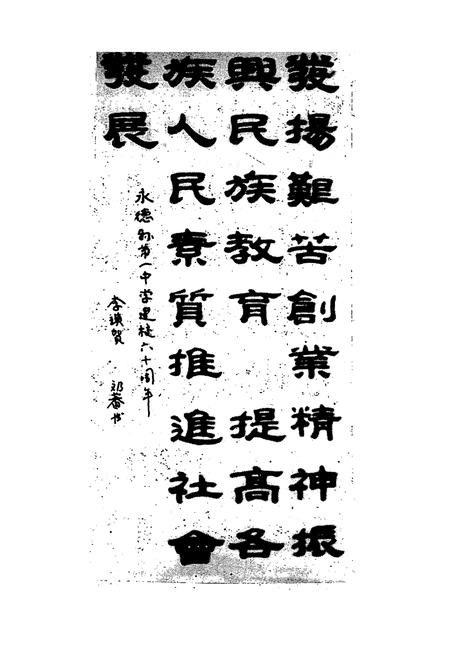 發揚艱苦創業精神振
興民族教育 提高各
族人民素質推進社會
發展
永德縣第一中学建校六十周年
李瑛賀